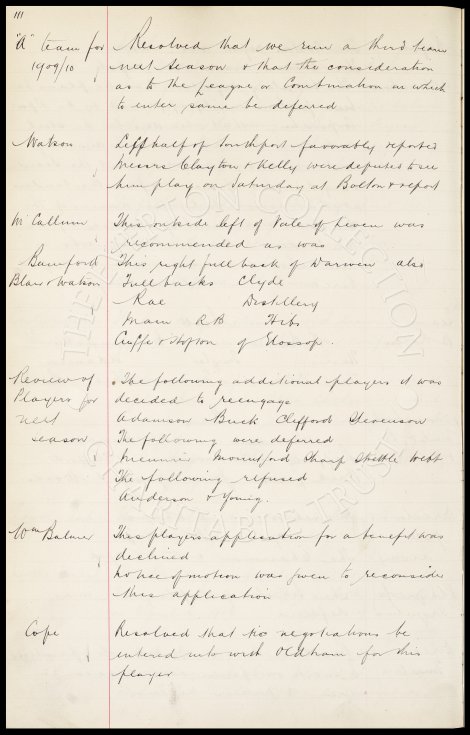 111
"A" team for Resolved that we run a third team
1909/10 next season & that the consideration
as to the League or Combination in which
to enter same be deferred
Watson Left half of Southport favorably reported
Messrs Clayton & Kelly were deputed to see
him play on Saturday at Bolton & report
McCallum This outside left of Vale of Leven was
recommended as was
Bamford This right full back of Darwen also
Blair & Watson Full backs Clyde
Rae Distillery
Main R B Hibs
Cuffe & Hofton of Glossop.
Review of The following additional players it was
Players for decided to reengage
next Adamson Buck Clifford Stevenson
season The following were deferred
Meunier Mountford Sharp Settle Webb
The following refused
Anderson & Young.
Wm Balmer This players application for a benefit was
declined
Notice of motion was given to reconsider
this application
Cope Resolved that no negotiations be
entered into with Oldham for this
player
THE EVERTON COLLECTION
CHARITABLE TRUST